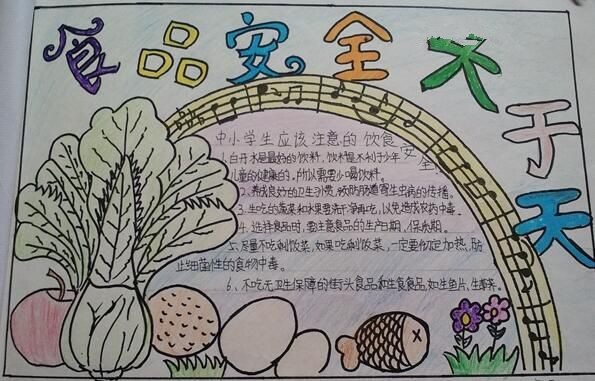 食品安全大于天
中小学生应该注意的饮食安全:
1、白开水是最好的饮料,饮料是不利于少年
儿童的健康的,所以需要少喝饮料。
2、养成良好的卫生习惯,预防肠道寄生虫病的传播。
3、生吃的蔬菜和水果要洗干净再吃,以免造成农药中毒。
4、选择食品时,要注意食品的生产日期、保质期。
5、尽量不吃剩饭菜,如果吃剩饭菜,一定要彻底加热,防
止细菌性的食物中毒。
6、不吃无卫生保障的街头食品和生食食品,如生鱼片、生